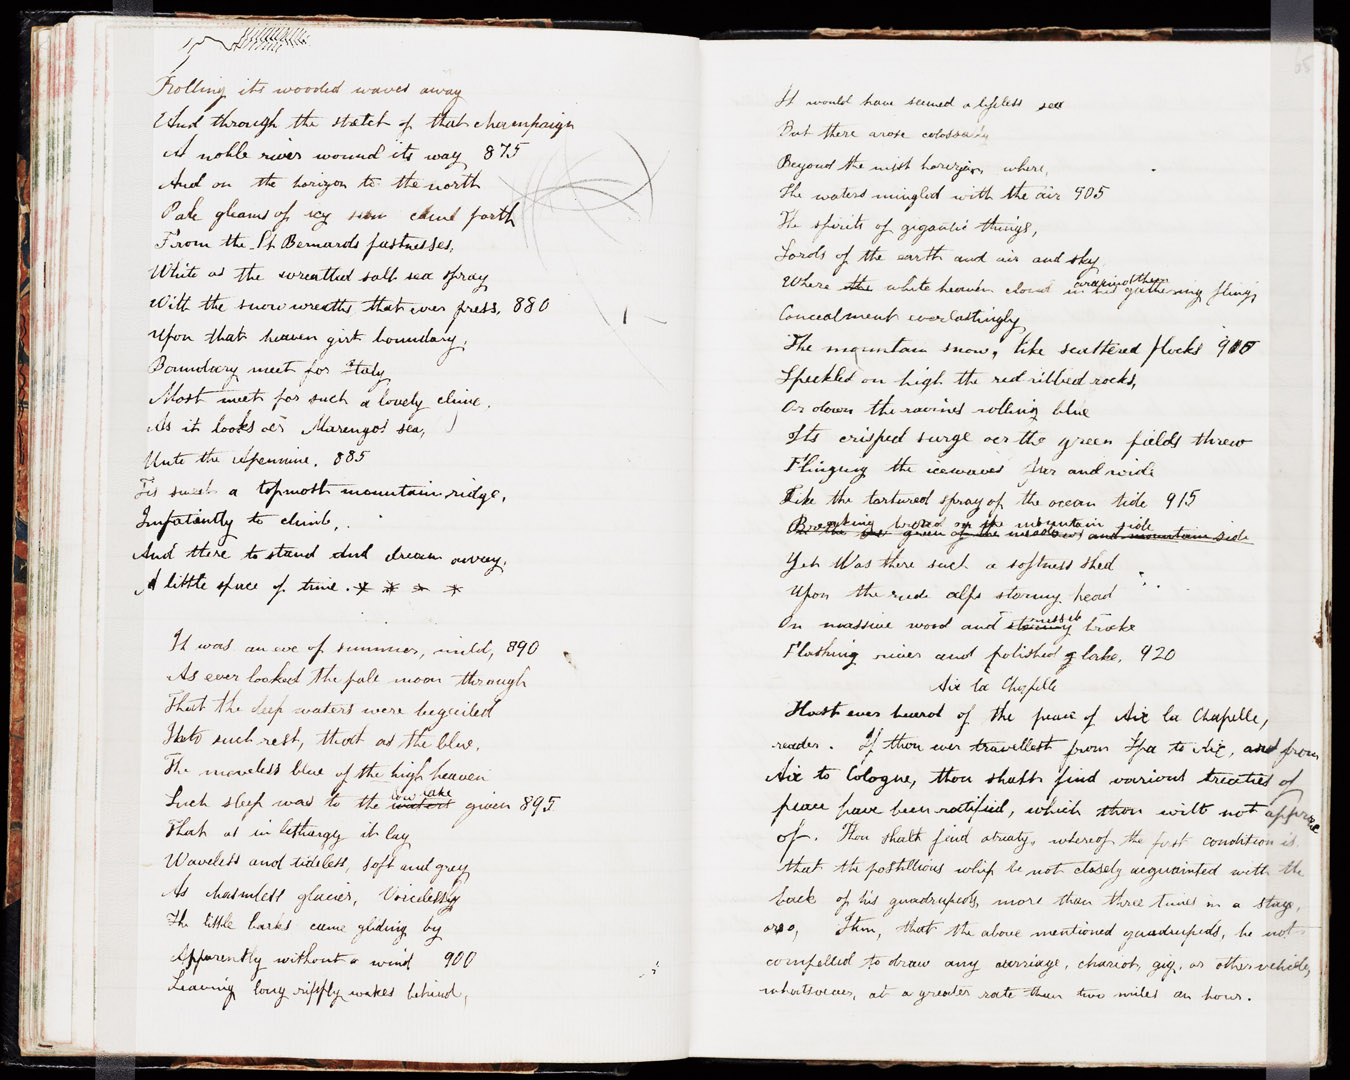 Rolling its wooded waves away
And through the stretch of that champaign
A noble river wound its way 875
And on the horizon to the north
Pale gleams of icy snow came forth
From the St Bernards fastnesses,
White as the wreathed salt sea spray
With the snow wreaths that ever press, 880
Upon that heaven girt boundary,
Boundary meet for Italy
Most meet for such a lovely clime.
As it looks oer Marengos sea,
Unto the Apennine. 885
Tis sweet a topmost mountain ridge,
Impatiently to climb,
And there to stand and dream away,
A little space of time. * * * *
It was an eve of summer, mild, 890
As ever looked the pale moon through
That the deep waters were beguiled
Into such rest, that as the blue,
The moveless blue of the high heaven
Such sleep was to the waters low lake given 895
That as in lethargy it lay
Waveless and tideless, soft and grey
As chasmless glacier, Voicelessly
The little barks came gliding by
Apparently without a wind 900
Leaving long ripply wakes behind,
65
It would have seemed a lifeless sea
But there arose colossally
Beyond the mist horizon where,
The waters mingled with the air 905
The spirits of gigantic things,
Lords of the earth and air and sky
Where the white heaven cloud around them in his gathering flings
Concealment everlastingly
The mountain snow, like scattered flocks 910
Speckled on high the red ribbed rocks,
Or down the ravines rolling blue
Its crisped surge oer the green fields threw
Flinging the icewaves far and wide
Like the tortured spray of the ocean tide 915
Breaking broad on the mountain side
green of the meadows and mountain side
Yet Was there such a softness shed
Upon the rude alps stormy head
On massive wood and stormy mossed broke
Flashing river and polished lake. 920
Aix la Chapelle
Hast ever heard of the peace of Aix la Chapelle,
reader. If thou ever travellest from Spa to Aix, and from
Aix to Cologne, thou shalt find various treaties of
peace have been ratified, which thou wilt not approve
of. Thou shalt find a treaty, whereof the first condition is,
that the postillions whip be not closely acquainted with the
back of his quadrupeds, more than three times in a stage,
or so, Item, that the above mentioned quadrupeds, be not
compelled to draw any carriage, chariot, gig, or other vehicle,
whatsoever, at a greater rate than two miles an hour.